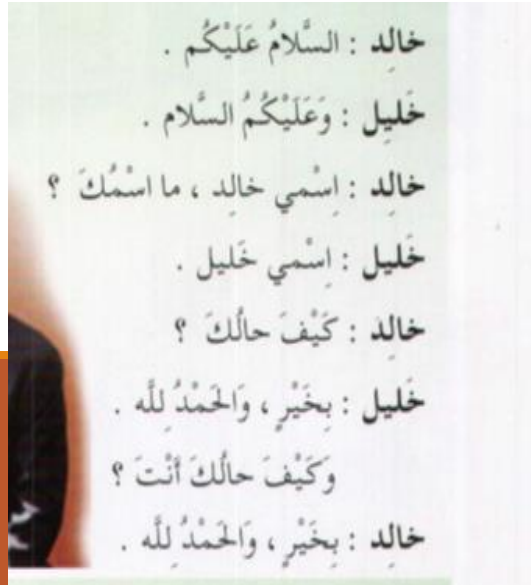 خالِد : السَّلامُ عَلَيْكُم .
خَليل : وَعَلَيْكُمُ السَّلام .
خالِد : اِسْمي خالِد ، ما اسْمُكَ ؟
خَليل : اِسْمي خَليل .
خالِد : كَيْفَ حالُكَ ؟
خَليل : بِخَيْرٍ ، وَالحَمْدُ لِلَّه .
وَكَيْفَ حالُكَ أَنْتَ ؟
خالِد : بِخَيْرٍ ، وَالحَمْدُ لِلَّه .